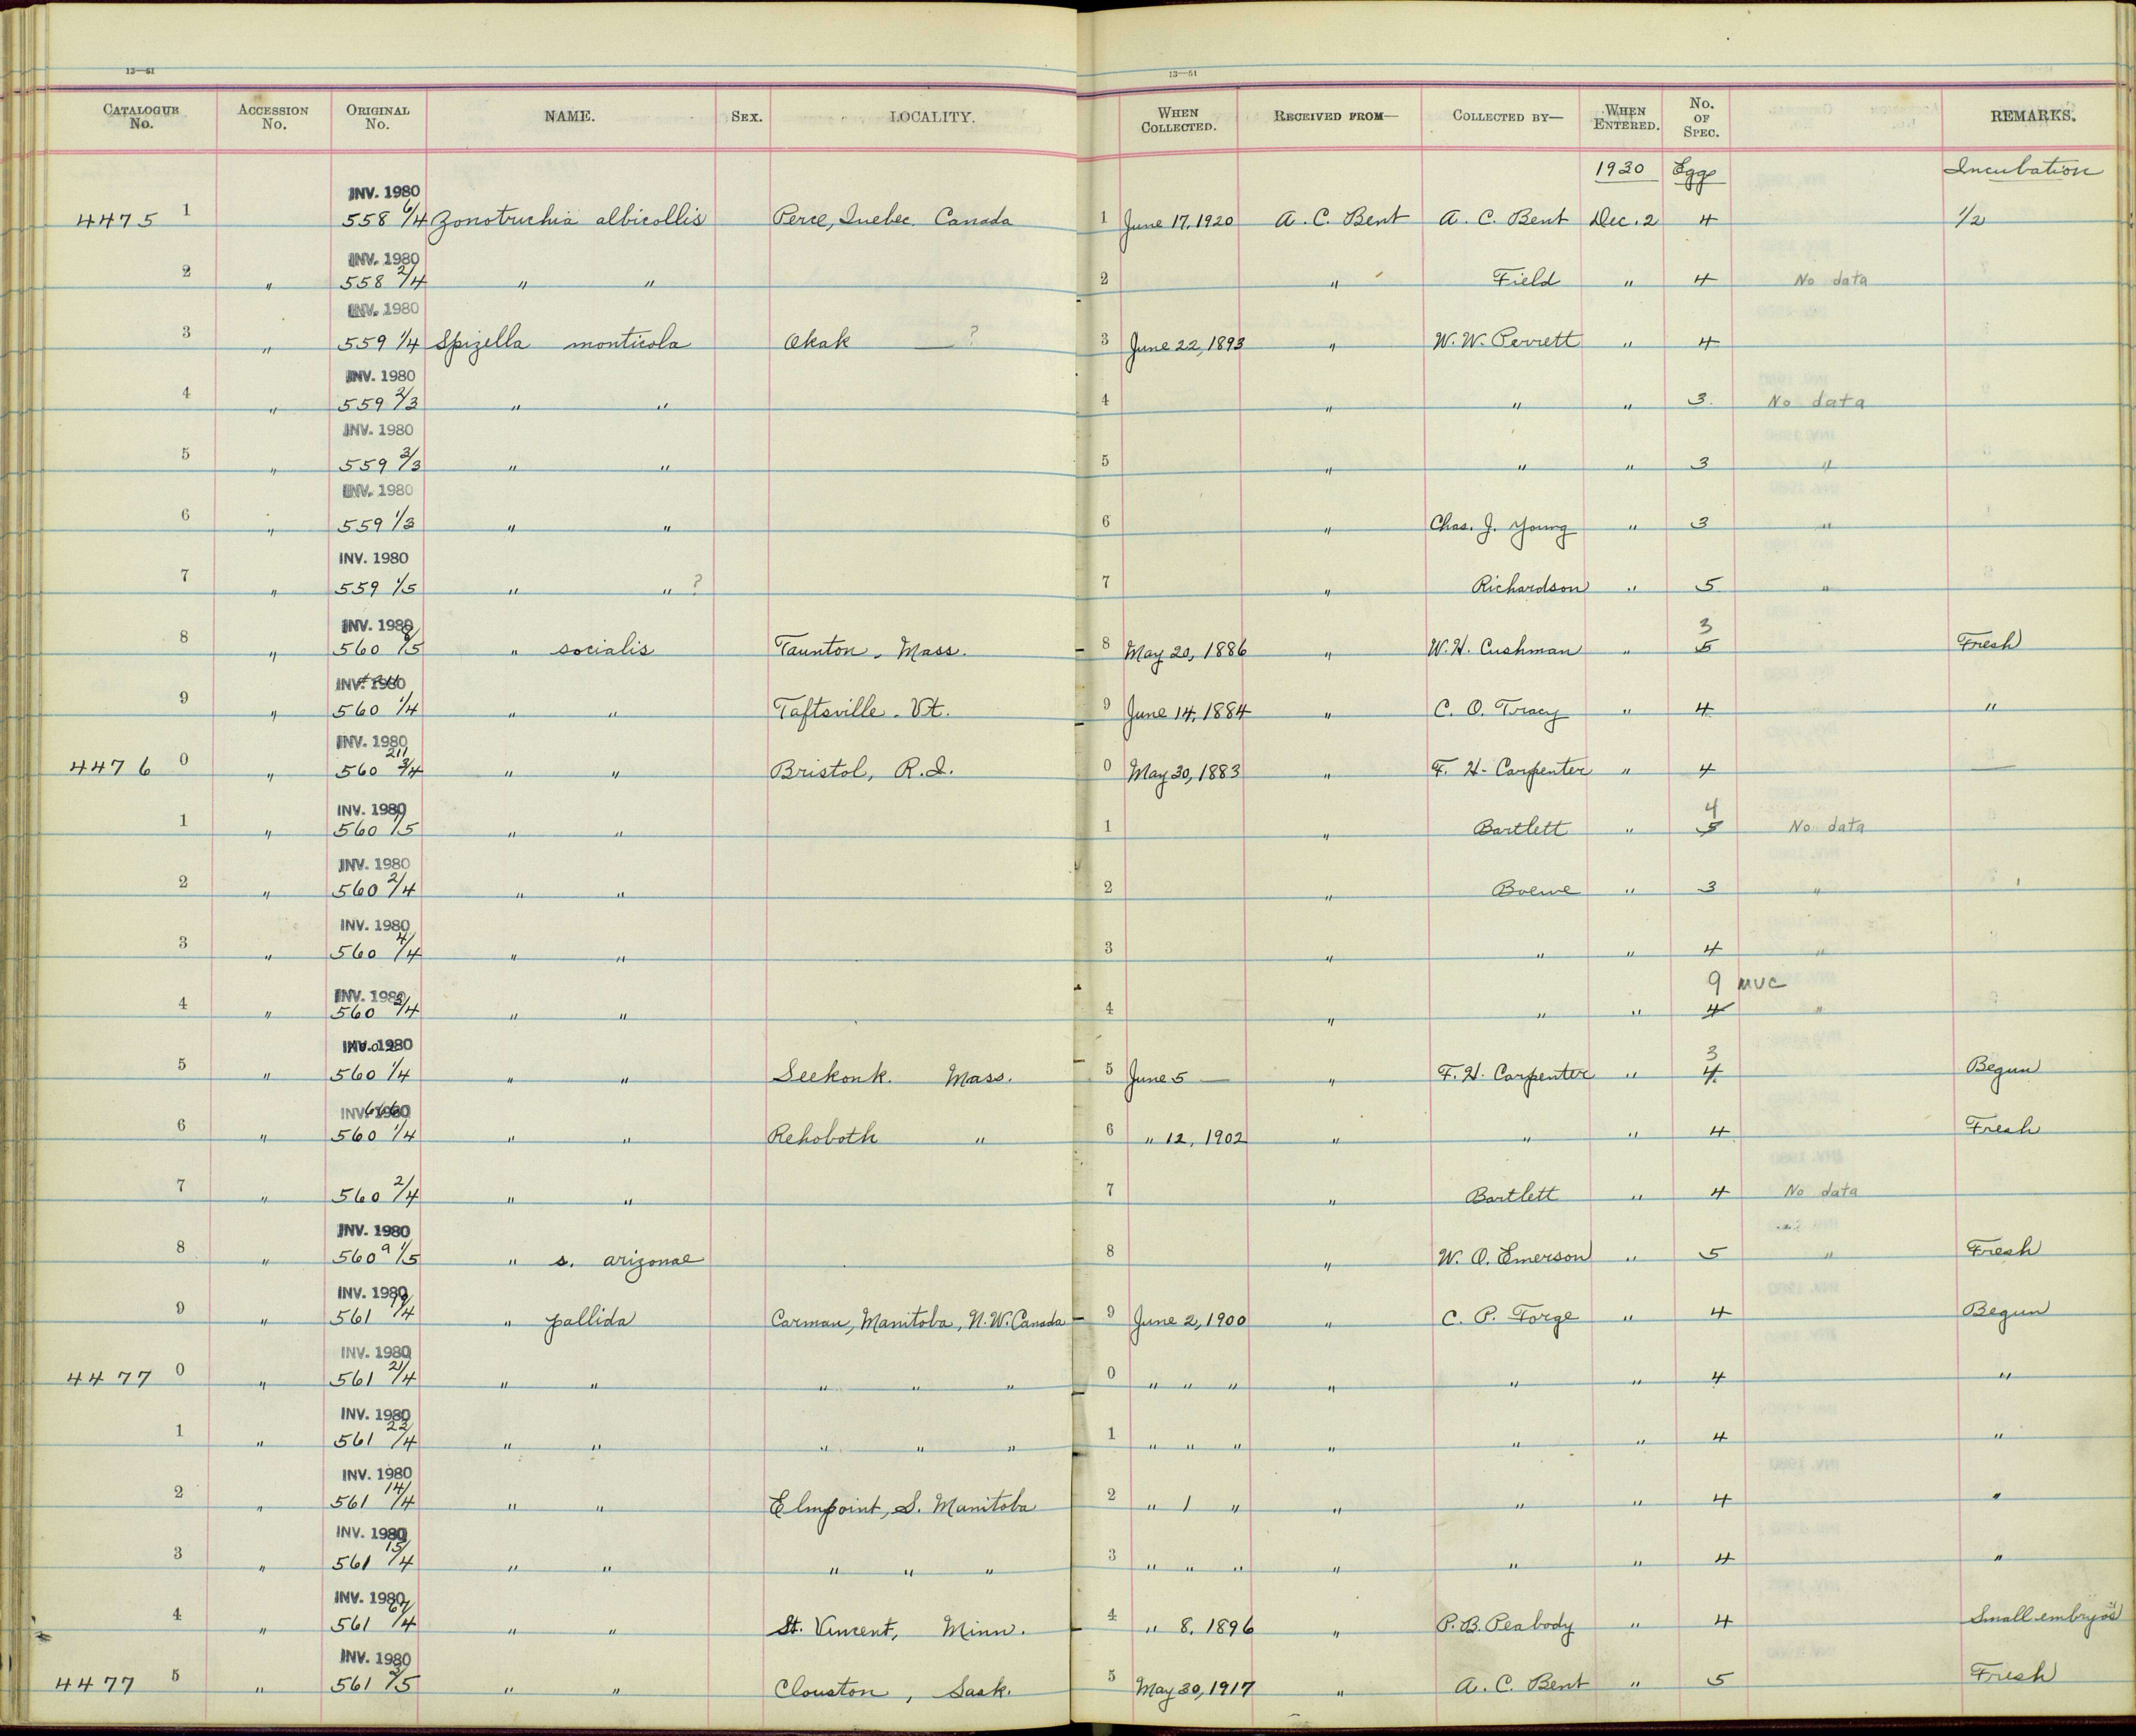 13—51 13—51
CATALOGUE No. ACCESSION No. ORIGINAL No. NAME. SEX. LOCALITY. WHEN COLLECTED. RECEIVED FROM— COLLECTED BY— WHEN ENTERED. No. OF SPEC. REMARKS.
1920 Eggs Incubation
INV. 1980
4475 1 558 6/4 Zonotrichia albicollis Perce, Quebec. Canada 1 June 17, 1920 A. C. Bent A. C. Bent Dec. 2 4 1/2
INV. 1980
2 " 558 2/4 " " 2 " Field " 4 No data
INV. 1980
3 " 559 1/4 Spizella monticola Okak — ? 3 June 22, 1893 " W. W. Perrett " 4
INV. 1980
4 " 559 2/3 " " 4 " " " 3. No data
INV. 1980
5 " 559 3/3 " " 5 " " " 3 "
INV. 1980
6 " 559 1/3 " " 6 " Chas. J. Young " 3 "
INV. 1980
7 " 559 1/5 " " ? 7 " Richardson " 5 "
INV. 1980 3
8 " 560 /5 " socialis Taunton, Mass. 8 May 20, 1886 " W. H. Cushman " 5 Fresh
INV. 1980
9 " 560 1/4 " " Taftsville, Vt. 9 June 14, 1884 " C. O. Tracy " 4 "
INV. 1980
211
4476 0 " 560 3/4 " " Bristol, R.I. 0 May 30, 1883 " F. H. Carpenter " 4 —
INV. 1980 4
1 " 560 1/5 " " 1 " Bartlett " 5 No data
INV. 1980
2 " 560 2/4 " " 2 " " 3 "
INV. 1980
3 " 560 4/4 " " 3 " " " 4 "
INV. 1980 9 MVC
4 " 560 3/4 " " 4 " " " 4 "
INV. 1980 3
5 " 560 1/4 " " Seekonk. Mass. 5 June 5 — " F. H. Carpenter " 4. Begun
INV. 1980 666
6 " 560 1/4 " " Rehoboth " 6 " 12, 1902 " " " 4 Fresh
7 " 560 2/4 " " 7 " Bartlett " 4 No data
INV. 1980
8 " 560a 1/5 " s. arizonae 8 " W. O. Emerson " 5 " Fresh
INV. 1980
9 " 561 19/4 " pallida Carman, Manitoba, N.W. Canada 9 June 2, 1900 " C. P. Forge " 4 Begun
INV. 1980
4477 0 " 561 21/4 " " " " " 0 " " " " " " 4 "
INV. 1980
1 " 561 22/4 " " " " " 1 " " " " " " 4 "
INV. 1980
2 " 561 14/4 " " Elmpoint, S. Manitoba 2 " 1 " " " " 4 "
INV. 1980
3 " 561 15/4 " " " " " 3 " " " " " " 4 "
INV. 1980
4 " 561 67/4 " " St. Vincent, Minn. 4 " 8, 1896 " P. B. Peabody " 4 Small embryos
INV. 1980
4477 5 " 561 3/5 " " Clouston, Sask. 5 May 30, 1917 " A. C. Bent " 5 Fresh